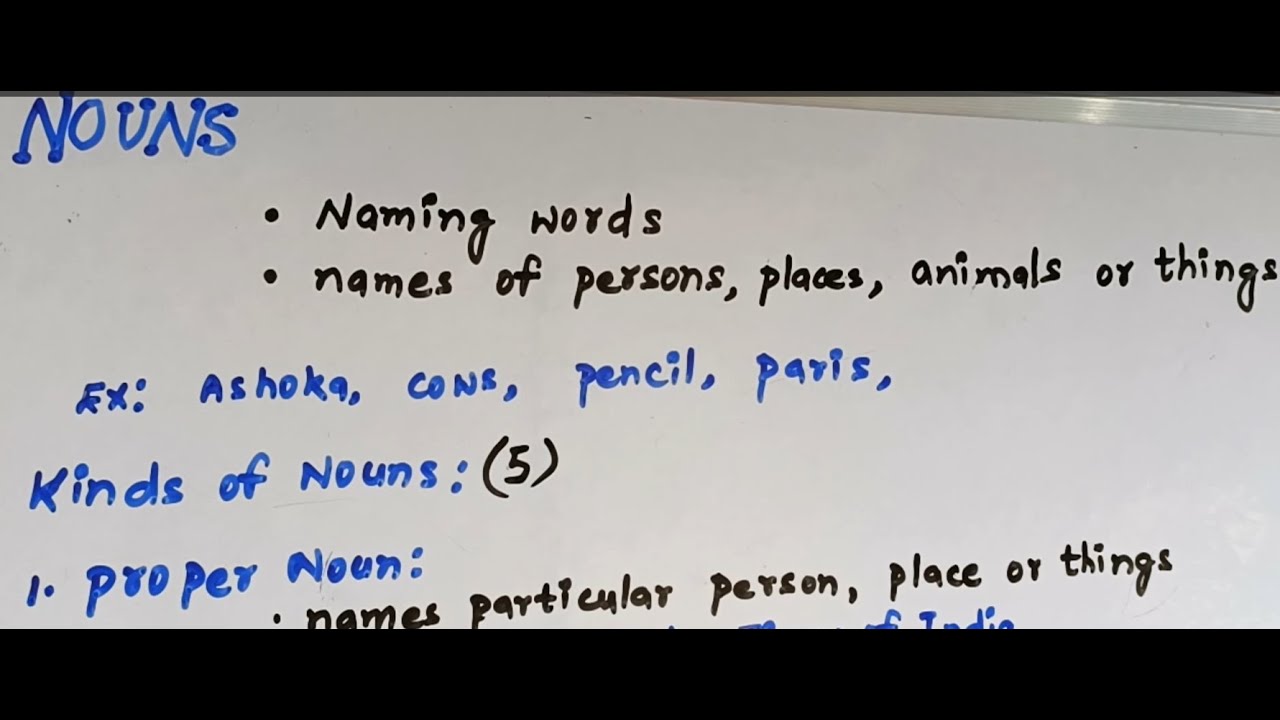 NOUNS
• Naming words
• names of persons, places, animals or things
Ex: Ashoka, cows, pencil, paris,
Kinds of Nouns: (5)
1. Proper Noun:
• names particular person, place or things
of India